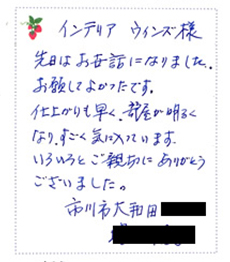 インテリア ウィンズ様
先日はお世話になりました。
お願してよかったです。
仕上がりも早く、部屋が明るく
なり、すごく気に入っています。
いろいろとご親切にありがとう
ございました。
市川市大和田